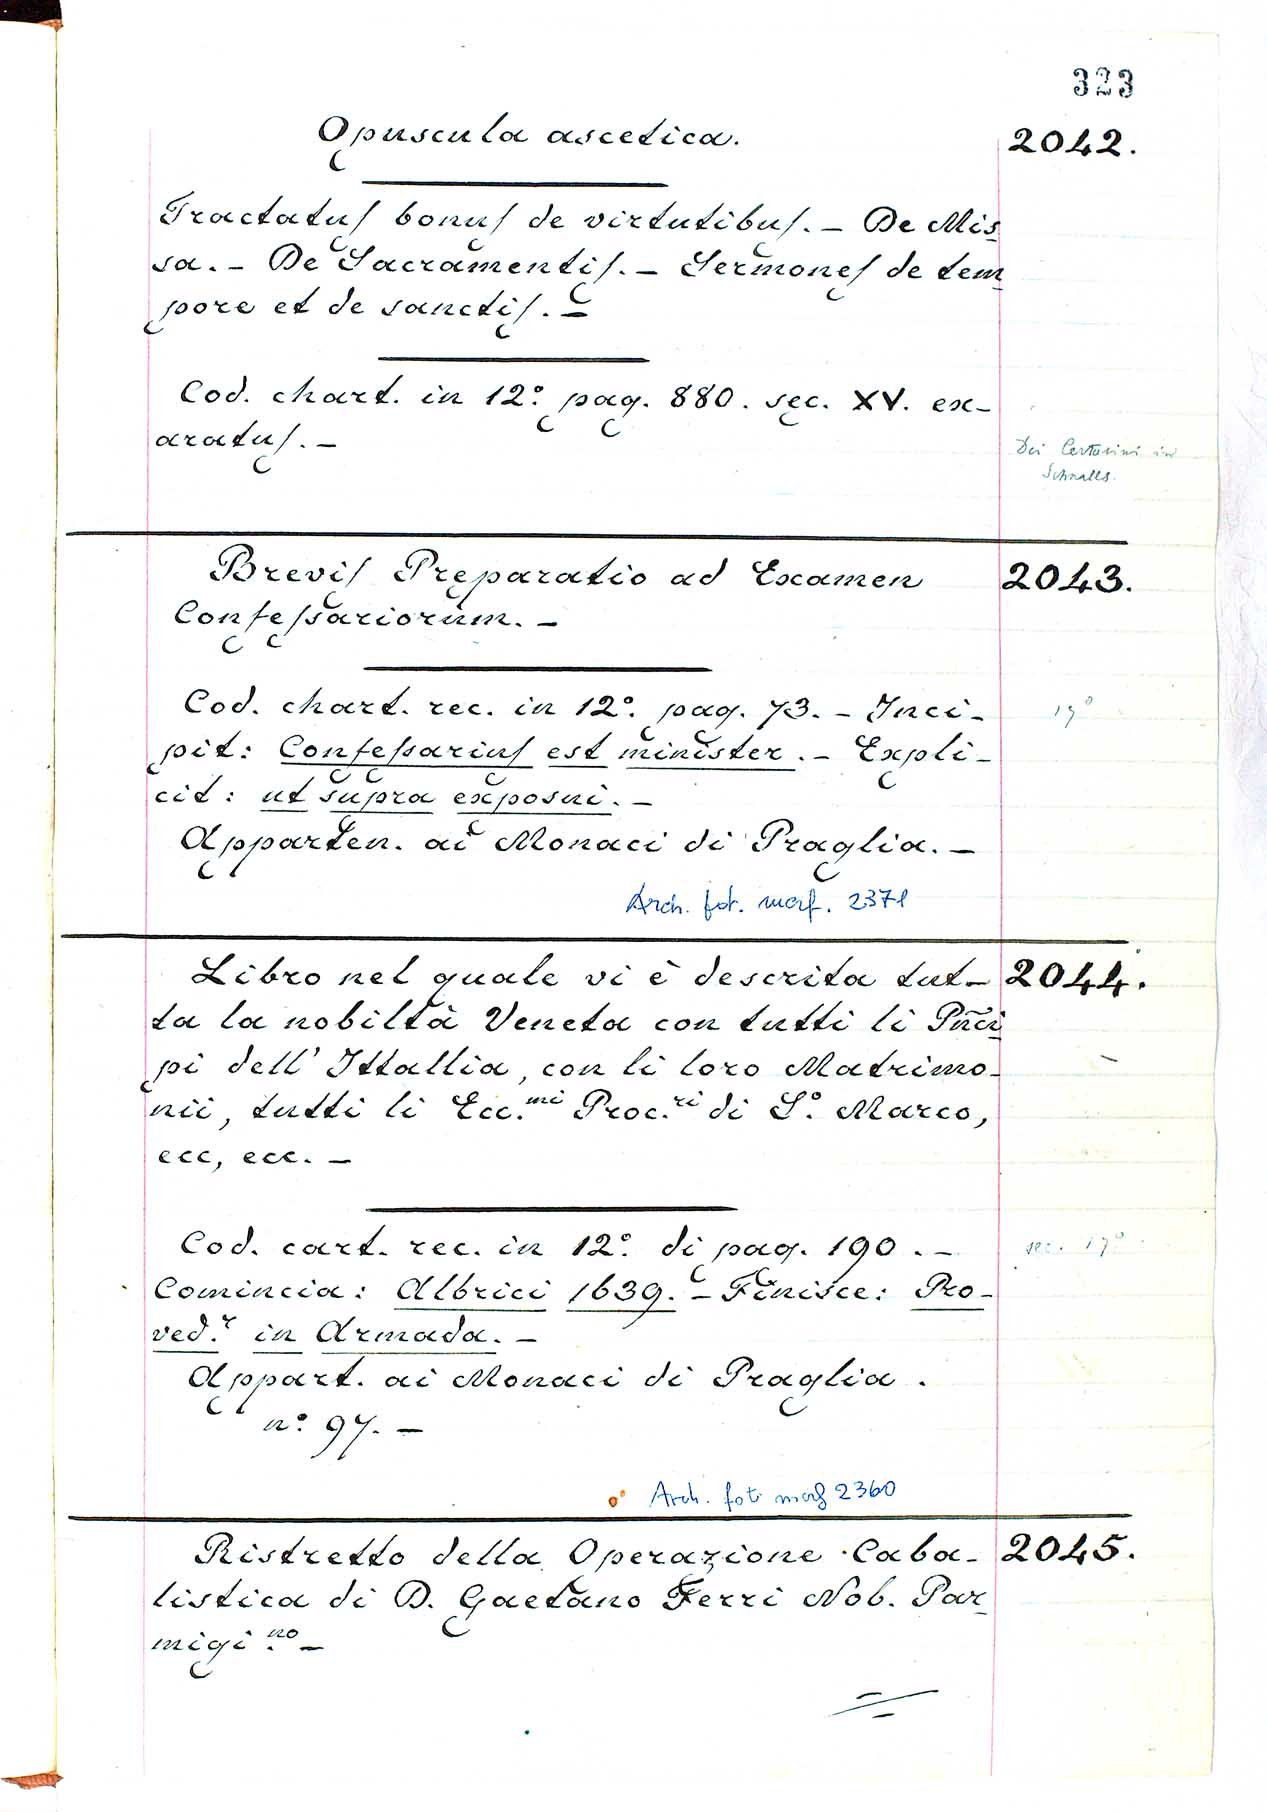 323
Opuscula ascetica.
2042.
Tractatuſ bonuſ de virtutibuſ. – De Mis-
sa. – De Sacramentiſ. – Sermoneſ de tem-
pore et de sanctiſ. –
Cod. chart. in 12º. pag. 880. sec. XV. ex-
aratuſ. –
Dei Certosini in
Schnalls.
Breviſ Preparatio ad Examen
2043.
Confeſsariorum. –
Cod. chart. rec. in 12º. pag. 73. – Inci-
17º
pit: Confeſsariuſ est minister. – Expli-
cit: ut supra exposui. –
Apparten. ai Monaci di Praglia. –
Arch. fot. marf. 2371
Libro nel quale vi è descrita tut-
2044.
ta la nobiltà Veneta con tutti li Pñci-
pi dell' Ittallia, con li loro Matrimo-
nii, tutti li Ecc.mi Proc.ri di S.º Marco,
ecc, ecc. –
Cod. cart. rec. in 12º. di pag. 190. –
sec. 17º
Comincia: Albrici 1639. – Finisce: Pro-
ved.r in Armada. –
Appart. ai Monaci di Praglia.
nº. 97. –
Arch. fot. marf 2360
Ristretto della Operazione Caba-
2045.
listica di D. Gaetano Ferri Nob. Par-
migi.no –